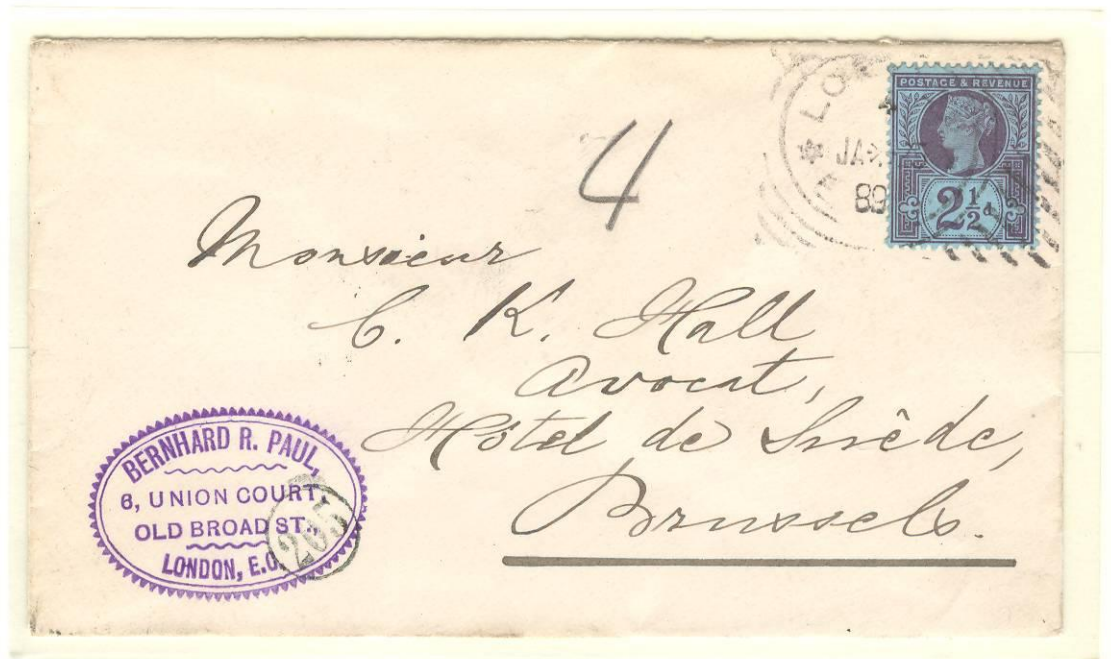 POSTAGE & REVENUE
2½d
JA
89
4
Monsieur
C. K. Hall
Avocat,
Hôtel de Suède,
Brussels.
BERNHARD R. PAUL,
6, UNION COURT,
OLD BROAD ST.,
LONDON, E.C.
205